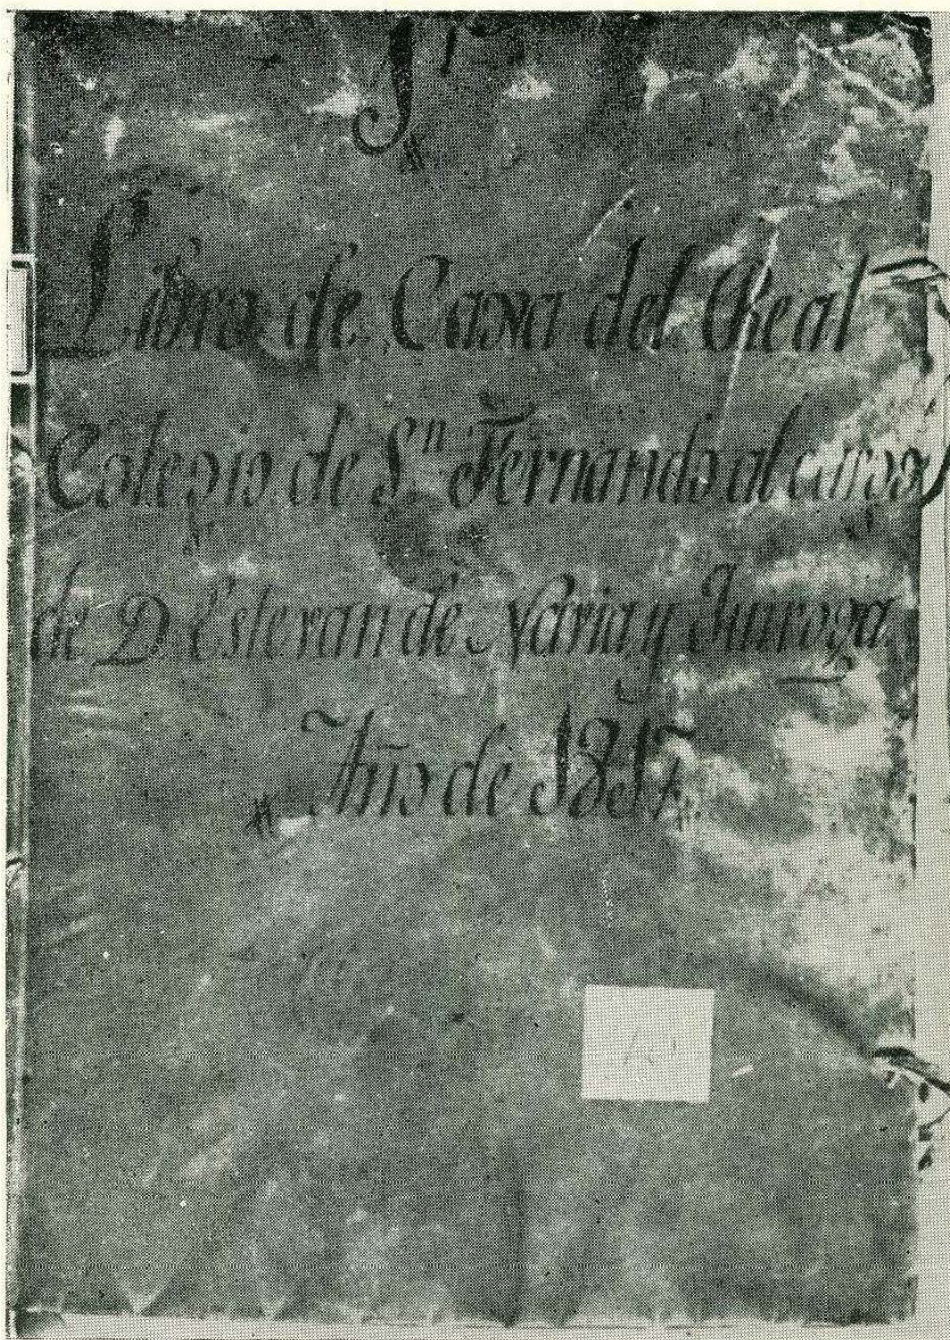 Libro de Caxa del Real
Colegio de Sn. Fernando al cargo
de D. Estevan de Varia y Quiroga
Año de 1817